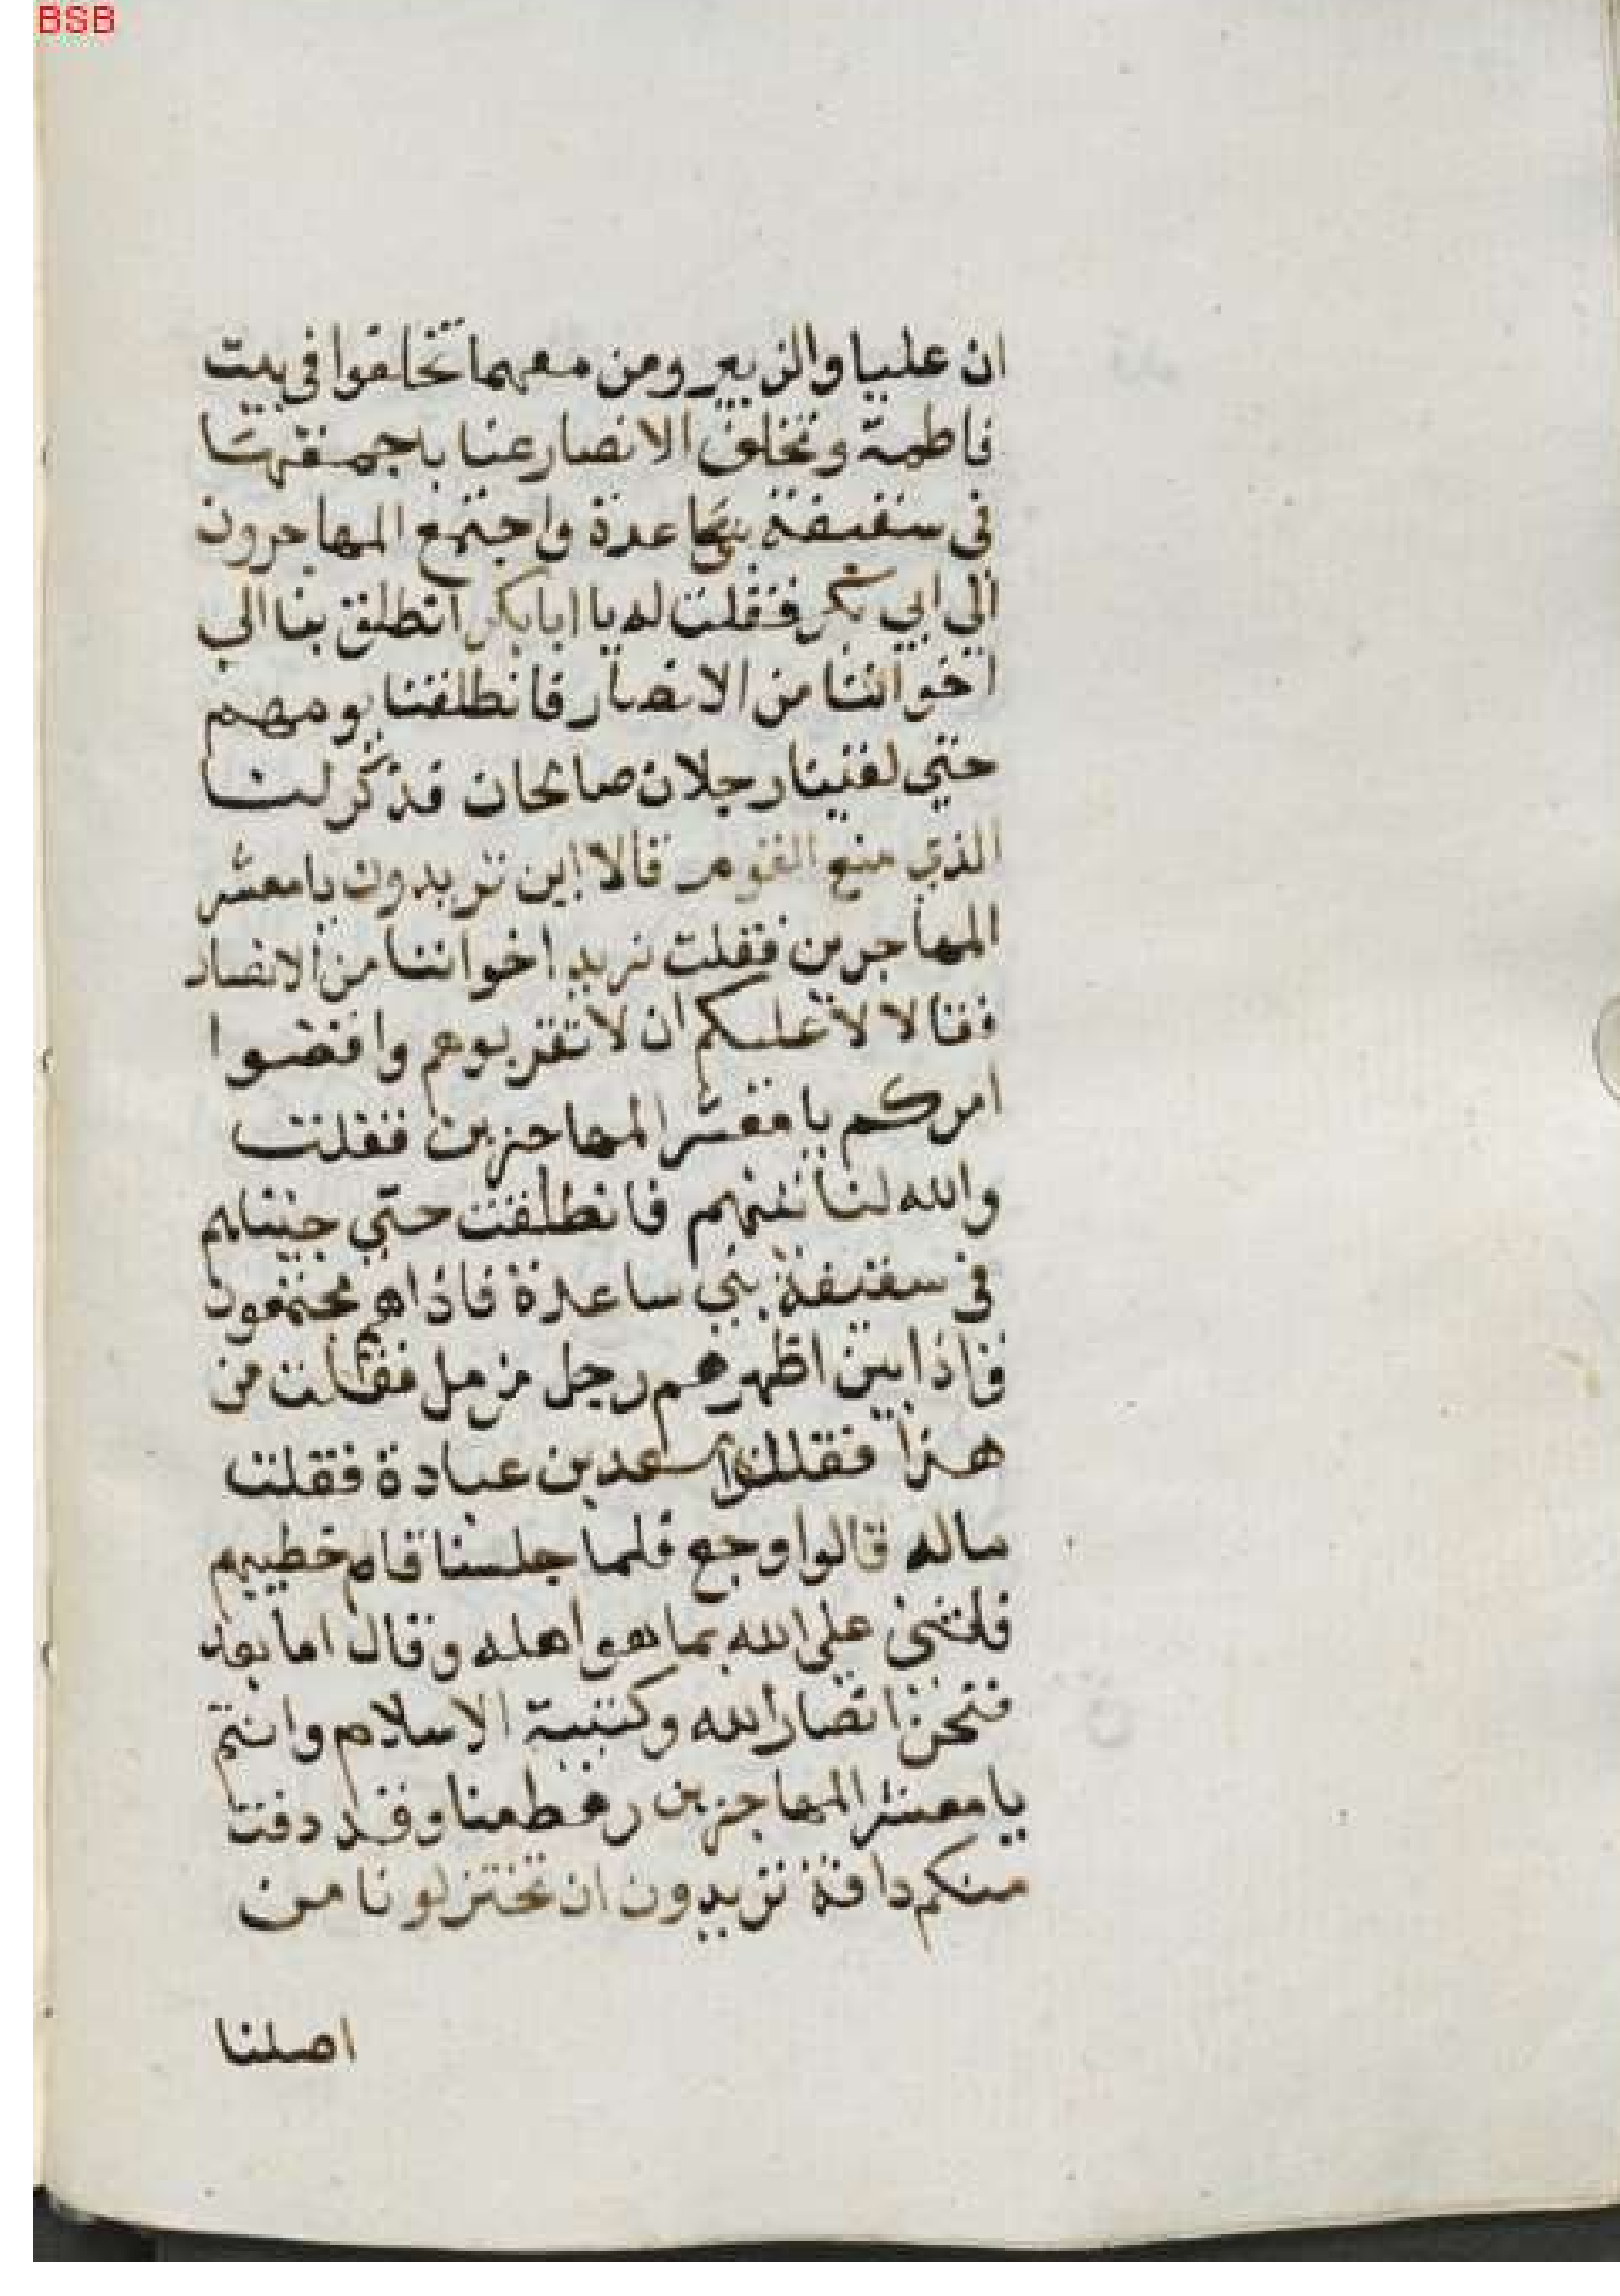 BSB
ان عليا والزبير ومن معهما تخلفوا في بيت
فاطمة وتخلف الانصار عنا باجمعها
في سقيفة بني ساعدة واجتمع المهاجرون
الي ابي بكر فقلت له يا ابا بكر انطلق بنا الي
اخواننا من الانصار فانطلقنا نومهم
حتي لقينا رجلان صالحان فذكر لنا
الذي صنع القوم قالا اين تريدون يا معشر
المهاجرين فقلت نريد اخواننا من الانصار
فقالا لا عليكم ان لا تقربوهم واقضوا
امركم يا معشر المهاجرين فقلت
والله لنا تينهم فانطلقت حتي جيناهم
في سقيفة بني ساعدة فاذا هم مجتمعون
فاذا بين اظهرهم رجل مزمل فقلت من
هذا فقالوا سعد بن عبادة فقلت
ماله قالوا وجع فلما جلسنا قام خطيبهم
فاثني علي الله بما هو اهله وقال اما بعد
فنحن انصار الله وكتيبة الاسلام وانتم
يا معشر المهاجرين رهط منا وقد دفت
منكم دافة تريدون ان تختزلونا من
اصلنا